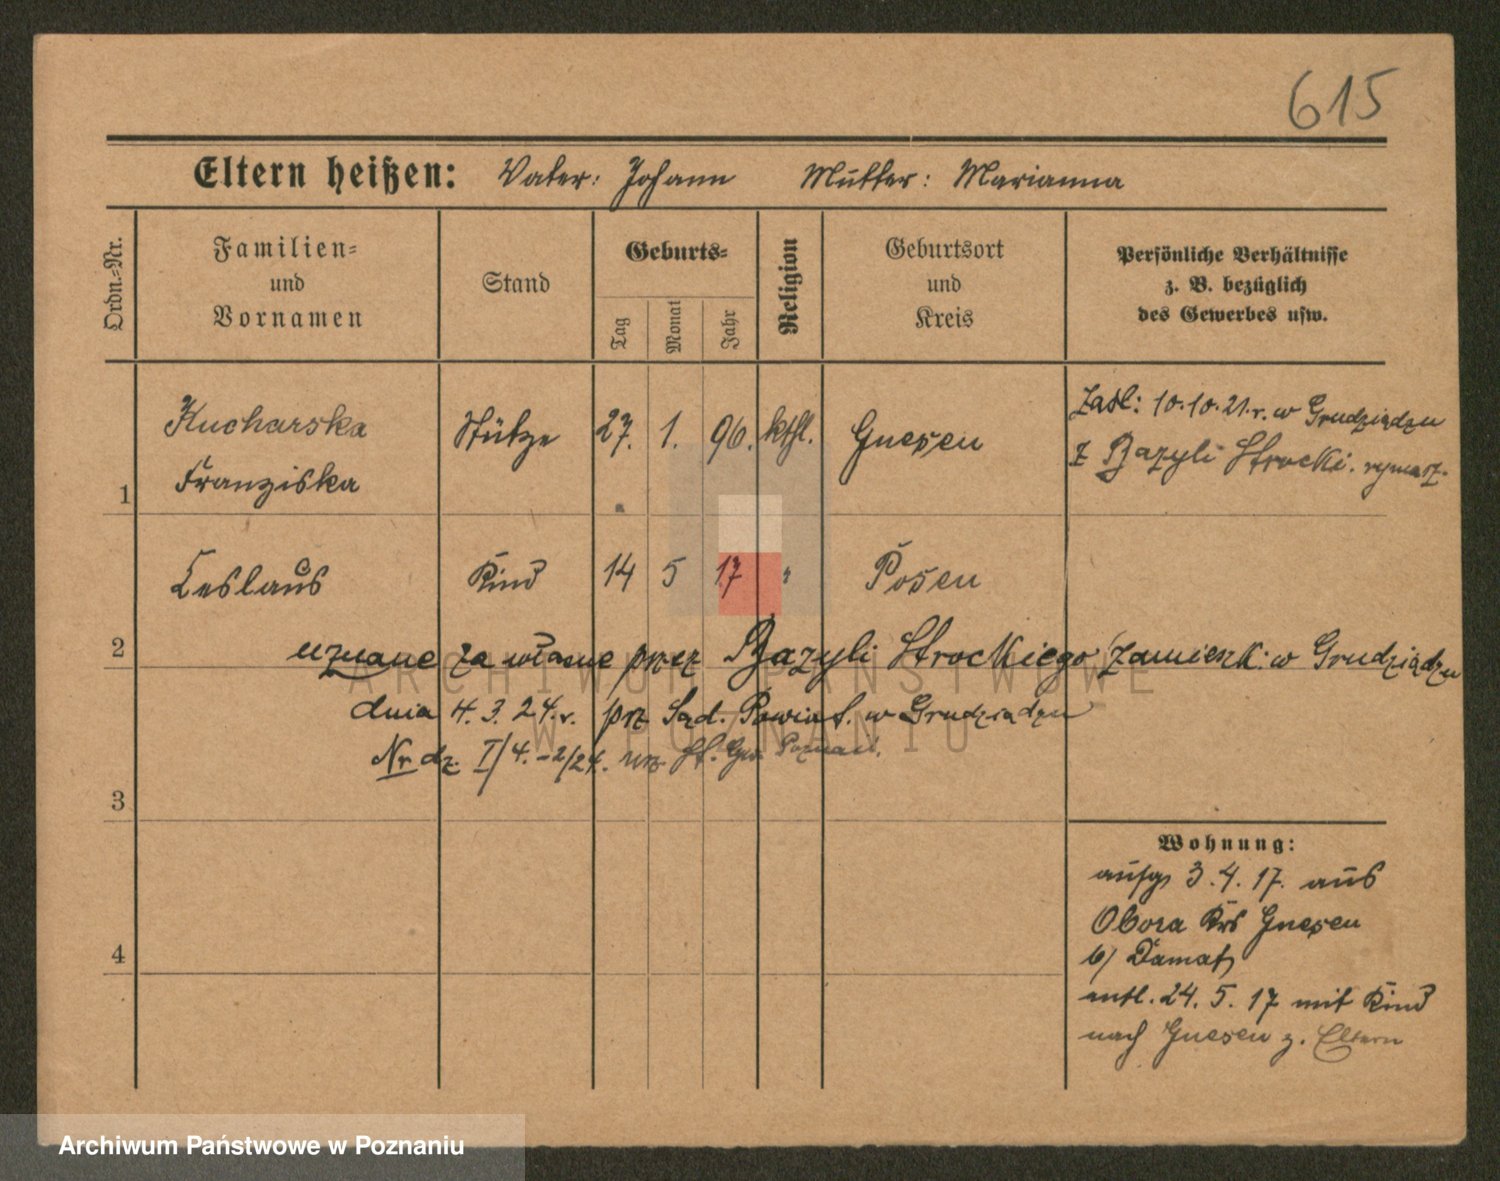 615
Eltern heißen: Vater: Johann Mutter: Marianna
Ordn.=Nr.
Familien=
und
Vornamen
Stand
Geburts=
Tag
Monat
Jahr
Religion
Geburtsort
und
Kreis
Persönliche Verhältnisse
z. B. bezüglich
des Gewerbes usw.
1
Kucharska
Franziska
Stütze
27. 1. 96. kthl.
Gnesen
Zaśl: 10.10.21.r. w Grudziądzu
z Bazyli Strocki. rymarz.
2
Ceslaus
Kind
14 5 17 "
Posen
uznane za własne przez Bazyli Strockiego zamieszk: w Grudziądzu
dnia 4. 3. 24. r. prz Sąd. Powiat. w Grudziądzu
Nr dz. I/4. - 2/24. urz. St. Cyw. Poznań.
3
4
Wohnung:
aufg 3.4.17. aus
Obora Krs Gnesen
b/ Damat
entl. 24. 5. 17 mit Kind
nach Gnesen z. Eltern
ARCHIWUM PAŃSTWOWE
W POZNANIU
Archiwum Państwowe w Poznaniu